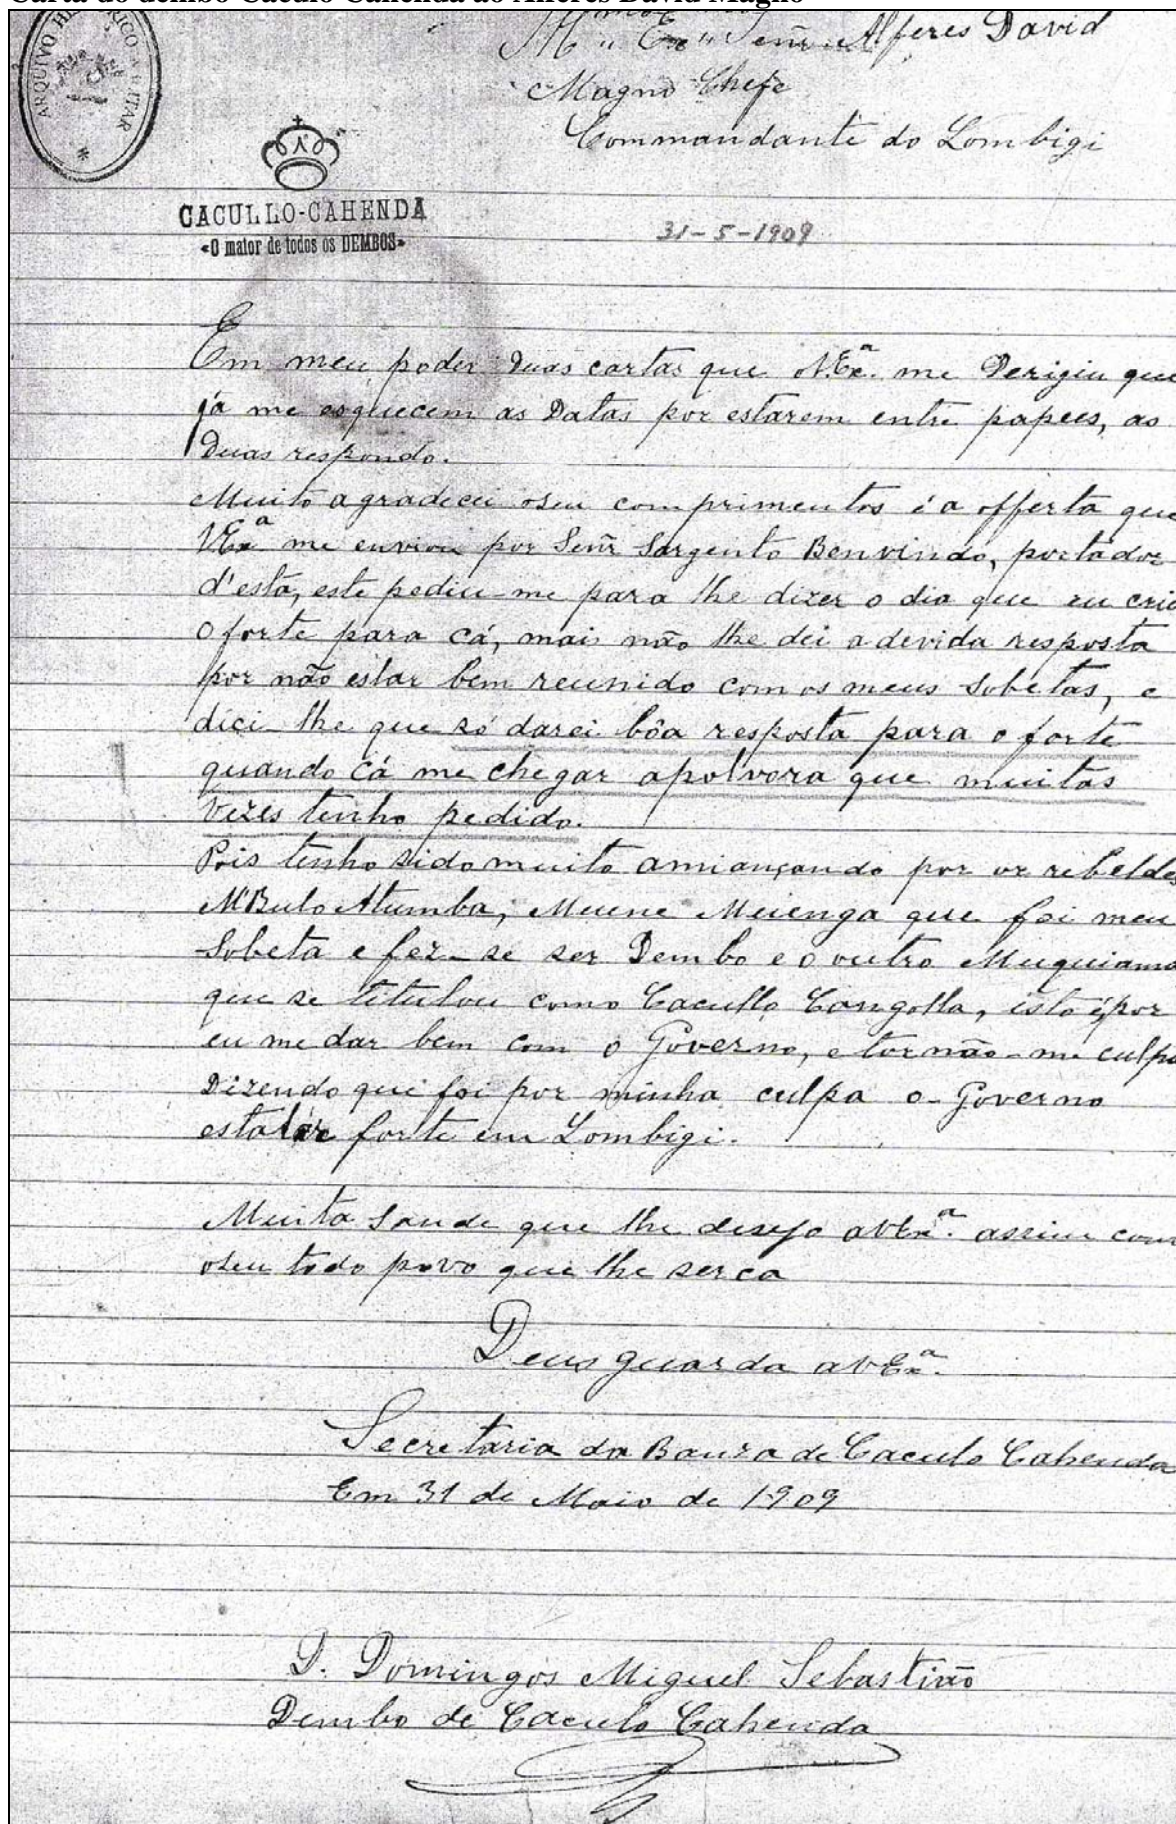 Carta do dembo Caculo Cahenda ao Alferes David Magno
ARQUIVO HISTORICO MILITAR
Senr Alferes David
Magno Chefe
Commandante do Lombigi
CACULLO-CAHENDA
«O maior de todos os DEMBOS»
31-5-1909
Em meu poder duas cartas que V.Exª. me Derigiu que
já me esquecem as Datas por estarem entre papeis, as
Duas respondo.
Muito agradeci oseu comprimentos é a offerta que
VExª me enviou por Senr Sargento Benvindo, portador
d'esta, este pediu-me para lhe dizer o dia que eu
o forte para cá, mais não lhe dei a devida resposta
por não estar bem reunido com os meus Sobetas, e
dici-lhe que só darei bôa resposta para o forte
quando cá me chegar apolvora que muitas
Vezes tenho pedido.
Pois tenho sido muito amiançando por os rebelde
M'Bulo Atumba, Muene Muenga que foi meu
Sobeta e fez-se ser Dembo e o outro Muquiama
que se titulou como Caculla Cangolla, isto é por
eu me dar bem com o Governo, e tornão-me culpa
Dizendo qui foi por minha culpa o Governo
estalár forte em Lombigi.
Muita Saude que lhe desejo aVExª. assim com
oseu todo povo que lhe serca
Deus guarda aVExª.
Secretaria da Banza de Caculo Cahenda
Em 31 de Maio de 1909
D. Domingos Miguel Sebastião
Dembo de Caculo Cahenda